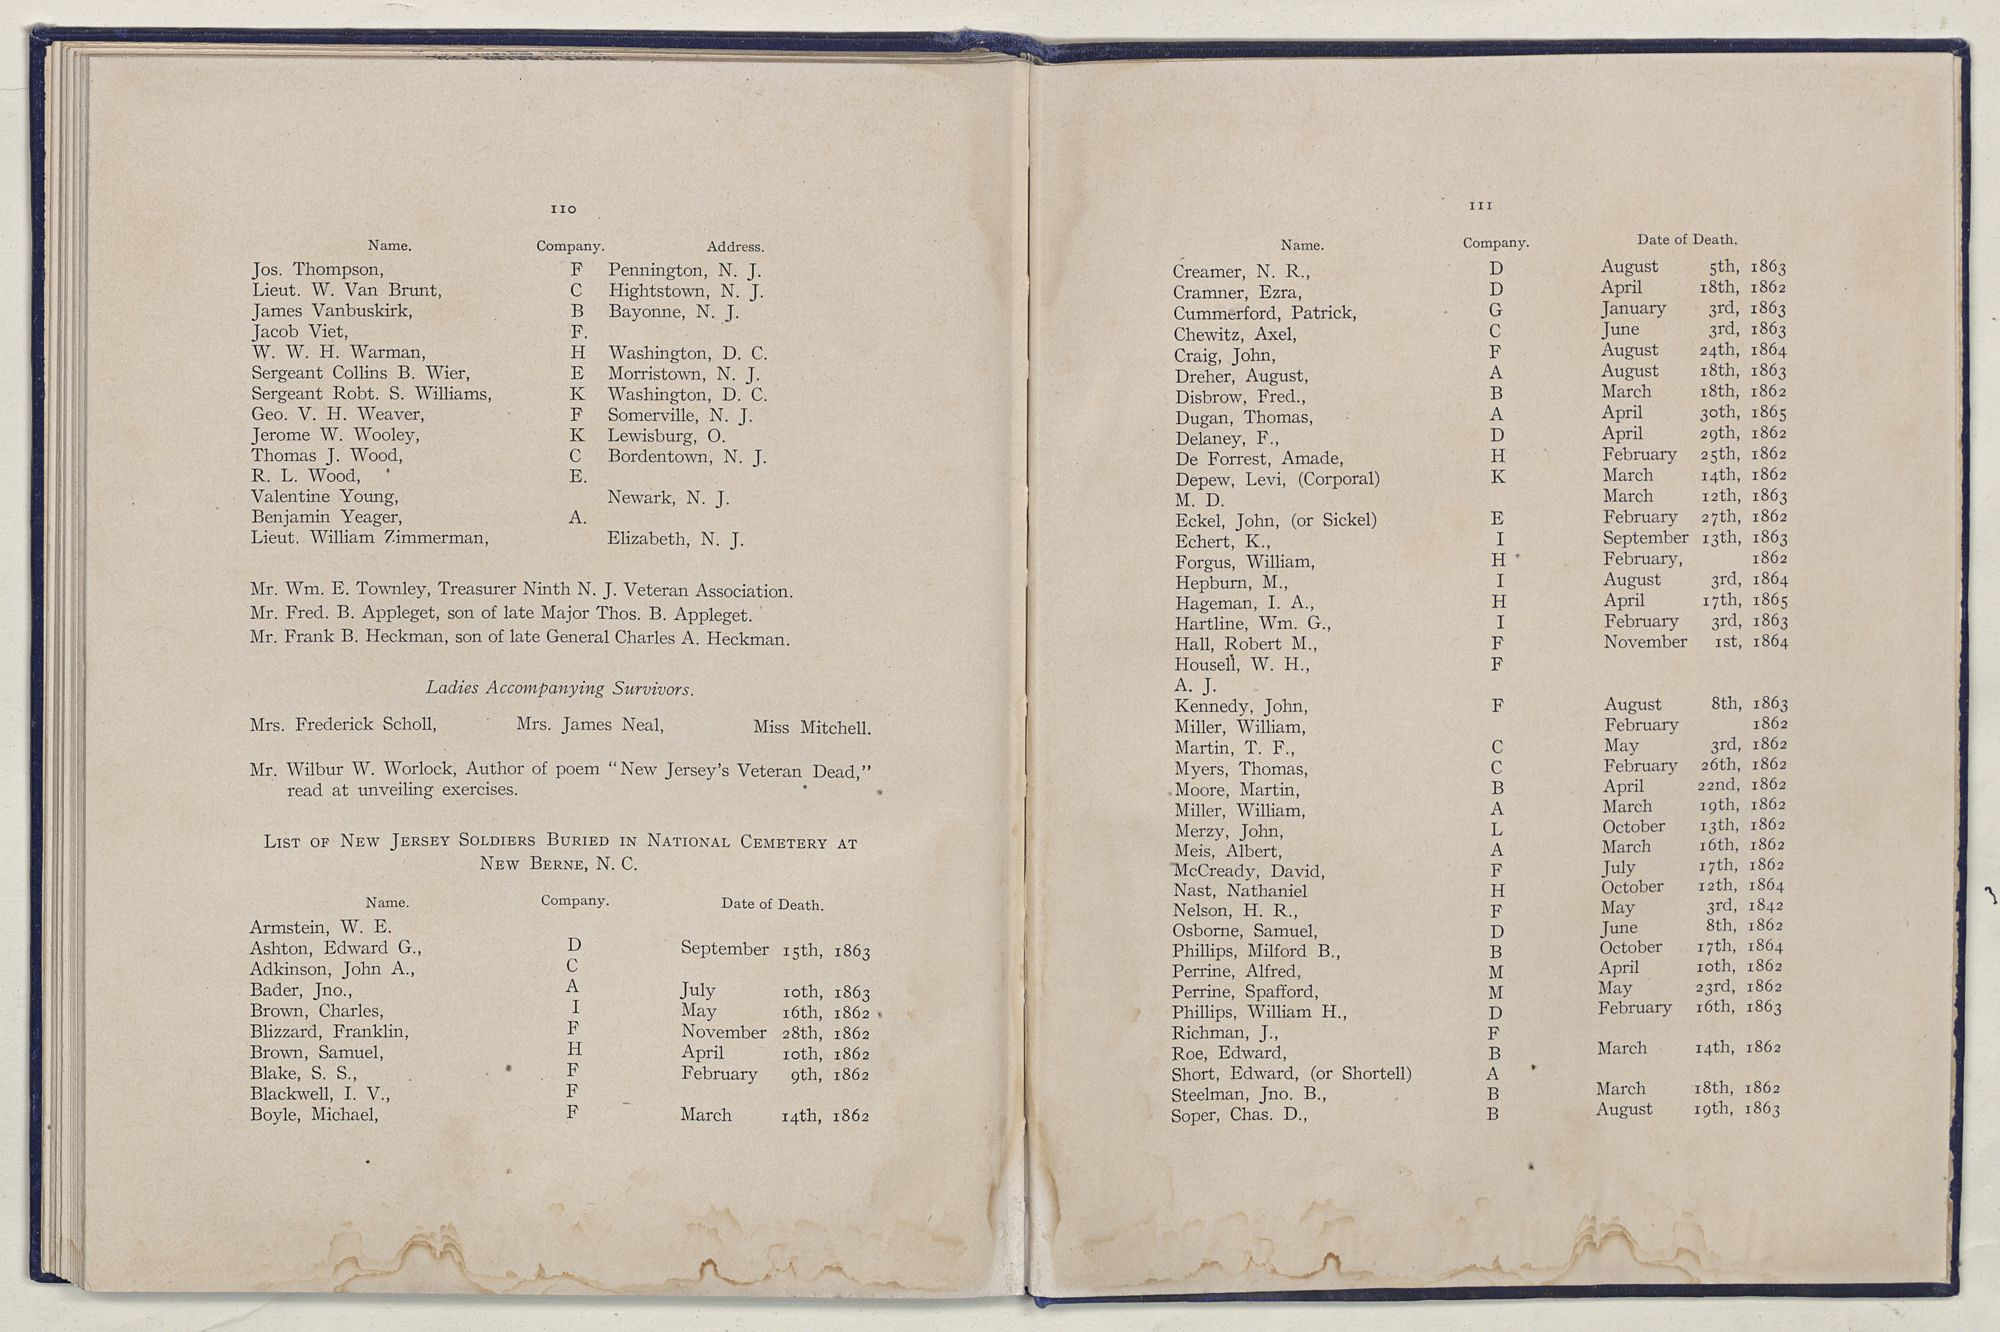 110
Name. Company. Address.
Jos. Thompson, F Pennington, N. J.
Lieut. W. Van Brunt, C Hightstown, N. J.
James Vanbuskirk, B Bayonne, N. J.
Jacob Viet, F.
W. W. H. Warman, H Washington, D. C.
Sergeant Collins B. Wier, E Morristown, N. J.
Sergeant Robt. S. Williams, K Washington, D. C.
Geo. V. H. Weaver, F Somerville, N. J.
Jerome W. Wooley, K Lewisburg, O.
Thomas J. Wood, C Bordentown, N. J.
R. L. Wood, E.
Valentine Young, Newark, N. J.
Benjamin Yeager, A.
Lieut. William Zimmerman, Elizabeth, N. J.
Mr. Wm. E. Townley, Treasurer Ninth N. J. Veteran Association.
Mr. Fred. B. Appleget, son of late Major Thos. B. Appleget.
Mr. Frank B. Heckman, son of late General Charles A. Heckman.
Ladies Accompanying Survivors.
Mrs. Frederick Scholl, Mrs. James Neal, Miss Mitchell.
Mr. Wilbur W. Worlock, Author of poem "New Jersey's Veteran Dead,"
read at unveiling exercises.
List of New Jersey Soldiers Buried in National Cemetery at
New Berne, N. C.
Name. Company. Date of Death.
Armstein, W. E.
Ashton, Edward G., D September 15th, 1863
Adkinson, John A., C
Bader, Jno., A July 10th, 1863
Brown, Charles, I May 16th, 1862
Blizzard, Franklin, F November 28th, 1862
Brown, Samuel, H April 10th, 1862
Blake, S. S., F February 9th, 1862
Blackwell, I. V., F
Boyle, Michael, F March 14th, 1862
111
Name. Company. Date of Death.
Creamer, N. R., D August 5th, 1863
Cramner, Ezra, D April 18th, 1862
Cummerford, Patrick, G January 3rd, 1863
Chewitz, Axel, C June 3rd, 1863
Craig, John, F August 24th, 1864
Dreher, August, A August 18th, 1863
Disbrow, Fred., B March 18th, 1862
Dugan, Thomas, A April 30th, 1865
Delaney, F., D April 29th, 1862
De Forrest, Amade, H February 25th, 1862
Depew, Levi, (Corporal) K March 14th, 1862
M. D. March 12th, 1863
Eckel, John, (or Sickel) E February 27th, 1862
Echert, K., I September 13th, 1863
Forgus, William, H February, 1862
Hepburn, M., I August 3rd, 1864
Hageman, I. A., H April 17th, 1865
Hartline, Wm. G., I February 3rd, 1863
Hall, Robert M., F November 1st, 1864
Housell, W. H., F
A. J.
Kennedy, John, F August 8th, 1863
Miller, William, February 1862
Martin, T. F., C May 3rd, 1862
Myers, Thomas, C February 26th, 1862
Moore, Martin, B April 22nd, 1862
Miller, William, A March 19th, 1862
Merzy, John, L October 13th, 1862
Meis, Albert, A March 16th, 1862
McCready, David, F July 17th, 1862
Nast, Nathaniel H October 12th, 1864
Nelson, H. R., F May 3rd, 1842
Osborne, Samuel, D June 8th, 1862
Phillips, Milford B., B October 17th, 1864
Perrine, Alfred, M April 10th, 1862
Perrine, Spafford, M May 23rd, 1862
Phillips, William H., D February 16th, 1863
Richman, J., F
Roe, Edward, B March 14th, 1862
Short, Edward, (or Shortell) A
Steelman, Jno. B., B March 18th, 1862
Soper, Chas. D., B August 19th, 1863